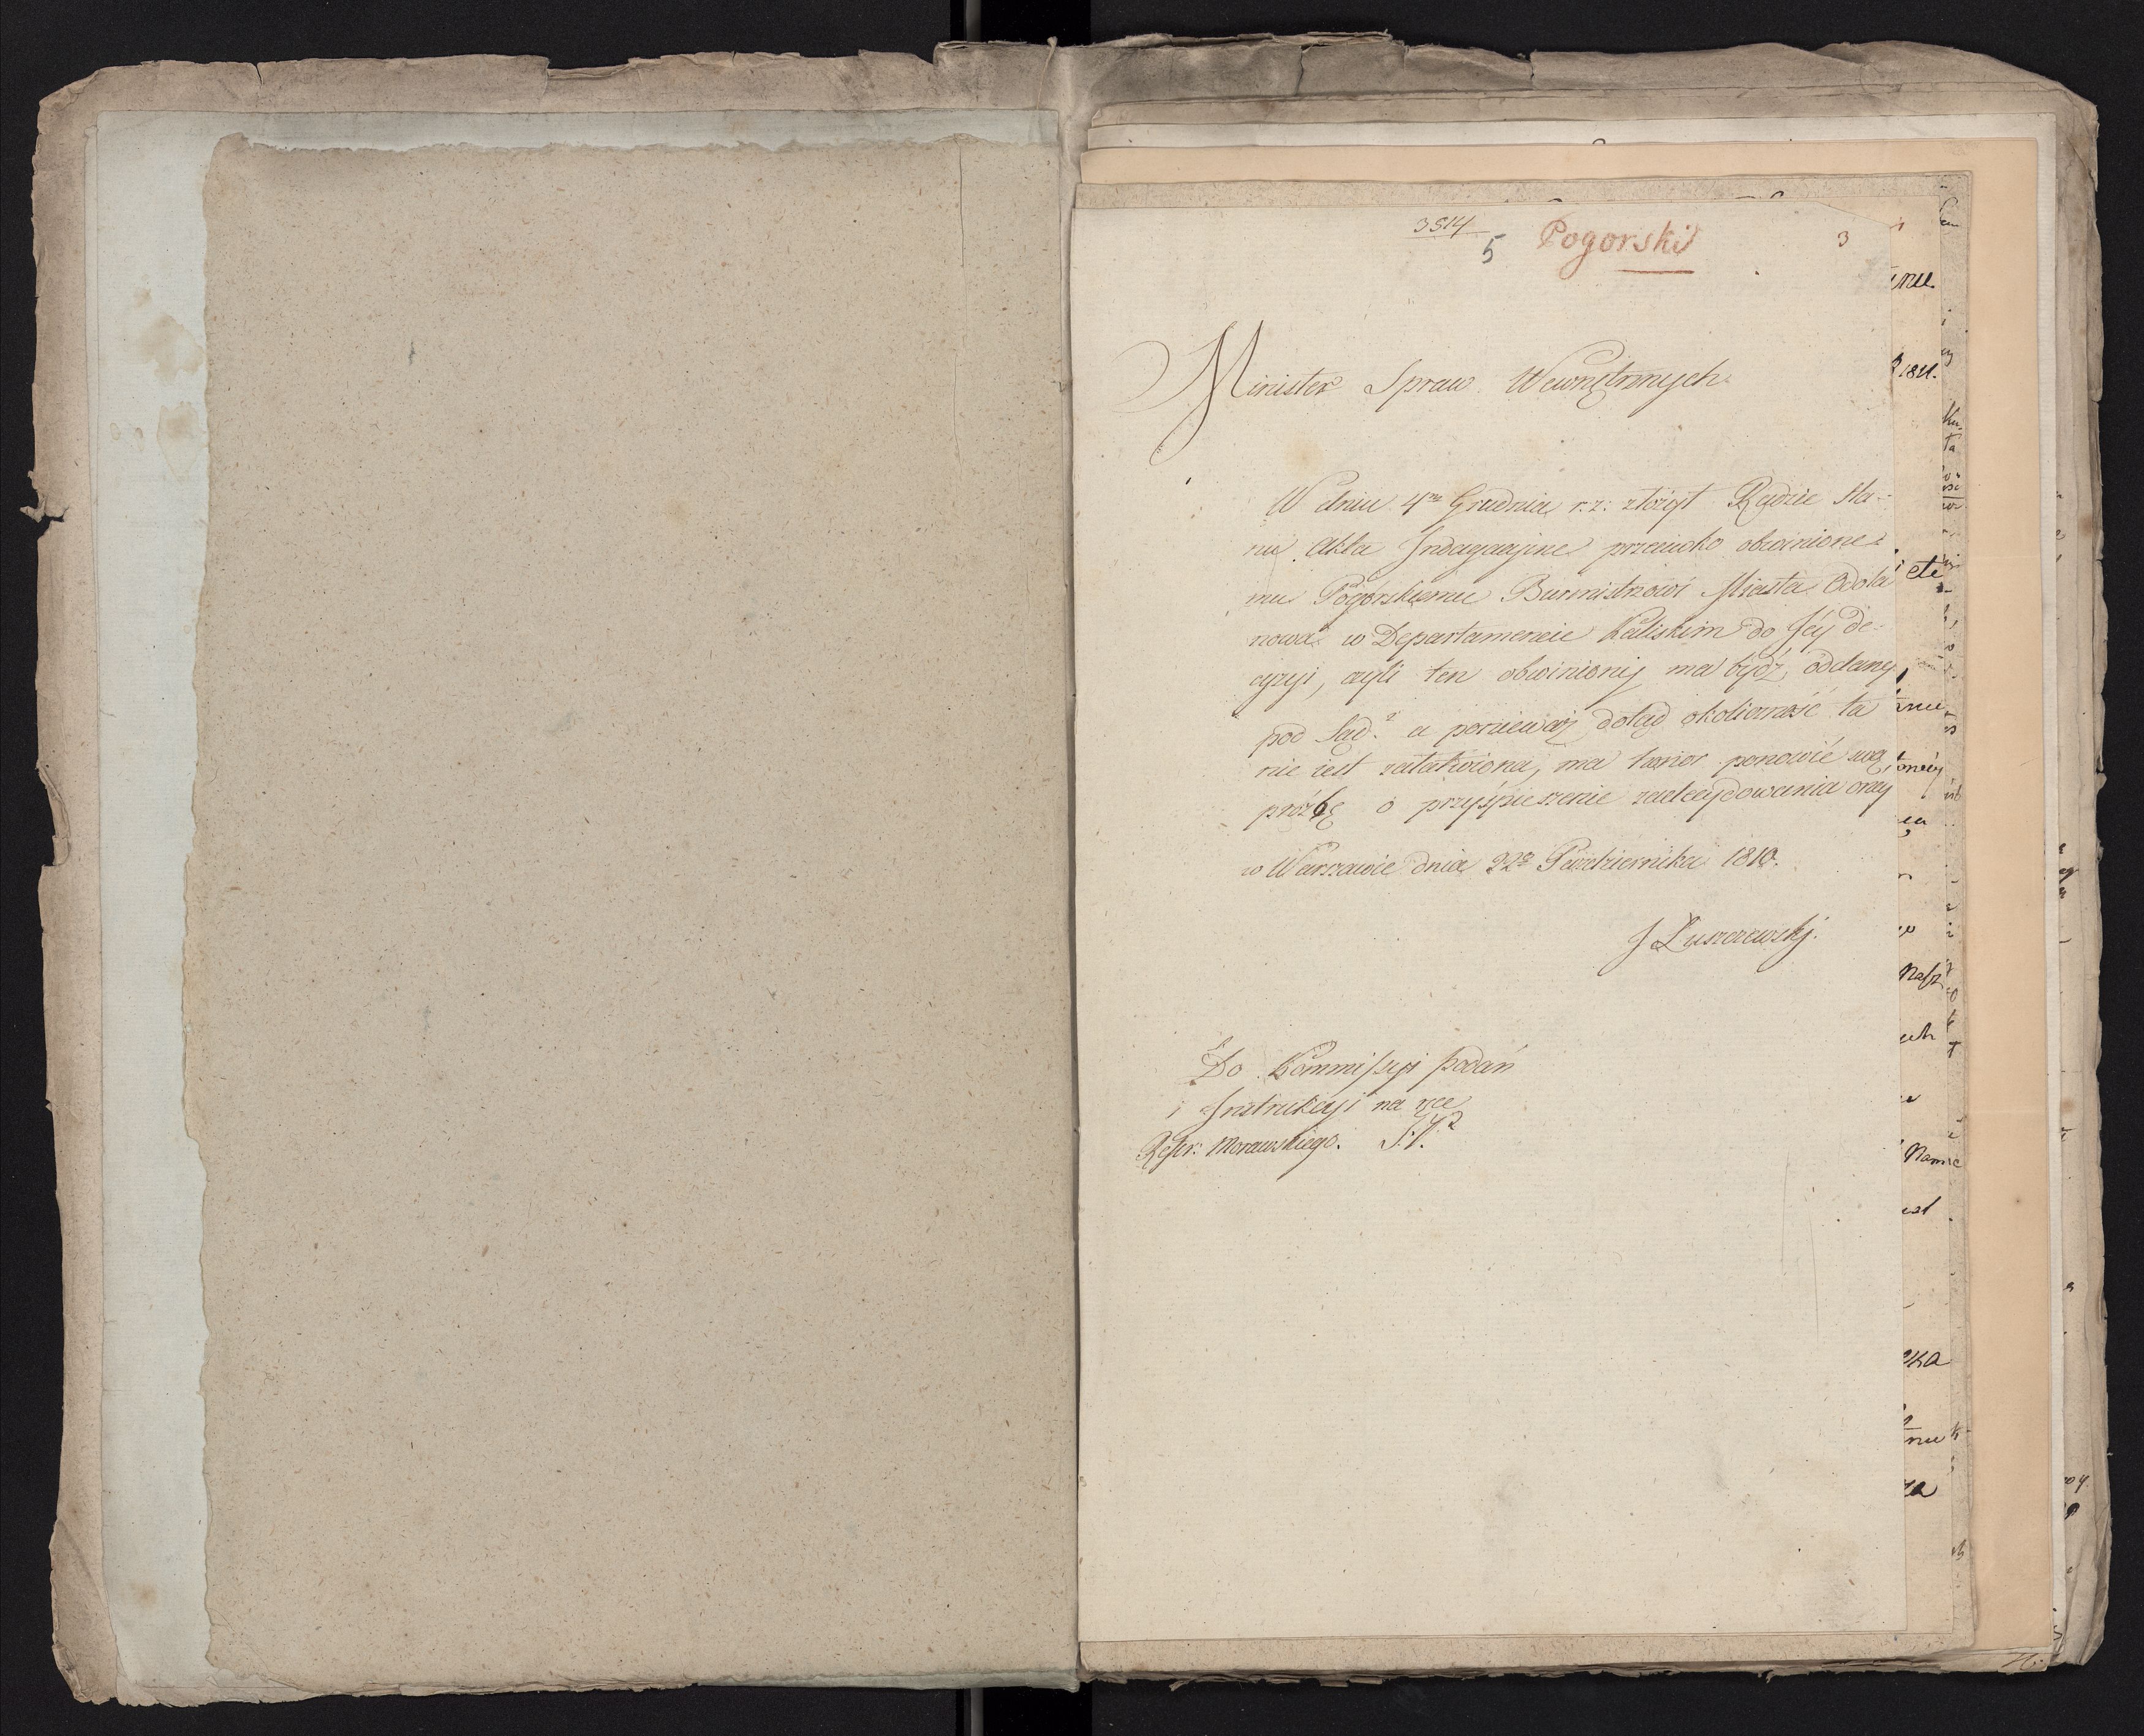 3514
5 Pogorski 3
Minister Spraw Wewnętrznych
W dniu 4ᵐ Grudnia r: z: złożył Radzie Sta-
nu Akta Indagacyjne przeciwko obwinione-
mu Pogórskiemu Burmistrzowi Miasta Adola
nowa w Departamencie Kaliskim do Jéy de-
cyzyi, czyli ten obwiniony ma bydź oddany
pod Sąd? a ponieważ dotąd okoliczność ta
nie iest załatwiona, ma honor ponowić swą
prózbę o przyśpieszenie zadecydowania oney
w Warszawie dnia 22º Pazdziernika 1810.
J Łuszczewskj.
Do Kommissyi podań
i Instrukcyi na ręce
Refer: Morawskiego.